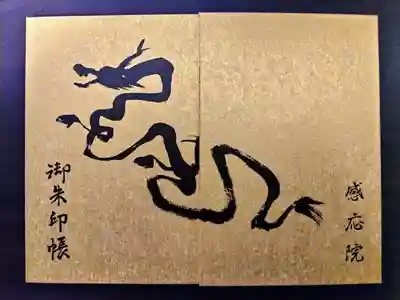 御朱印帳
感応院